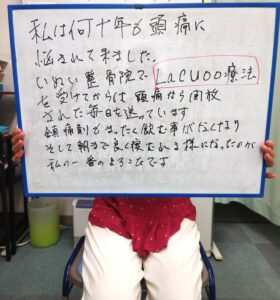 私は何十年も頭痛に
悩まされて来ました。
いぬい整骨院で LaCuoo療法
を受けてからは頭痛から開放
された毎日を送っています
鎮痛剤がまったく飲む事がなくなり
そして朝まで良く休まれる様になったのが
私の一番のよろこびです